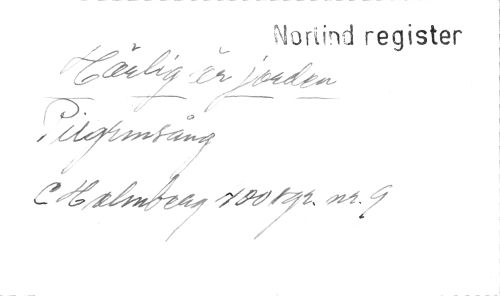 Norlind register
Härlig är jorden
Pilgrimsång
C Holmberg 700 gr. nr. 9